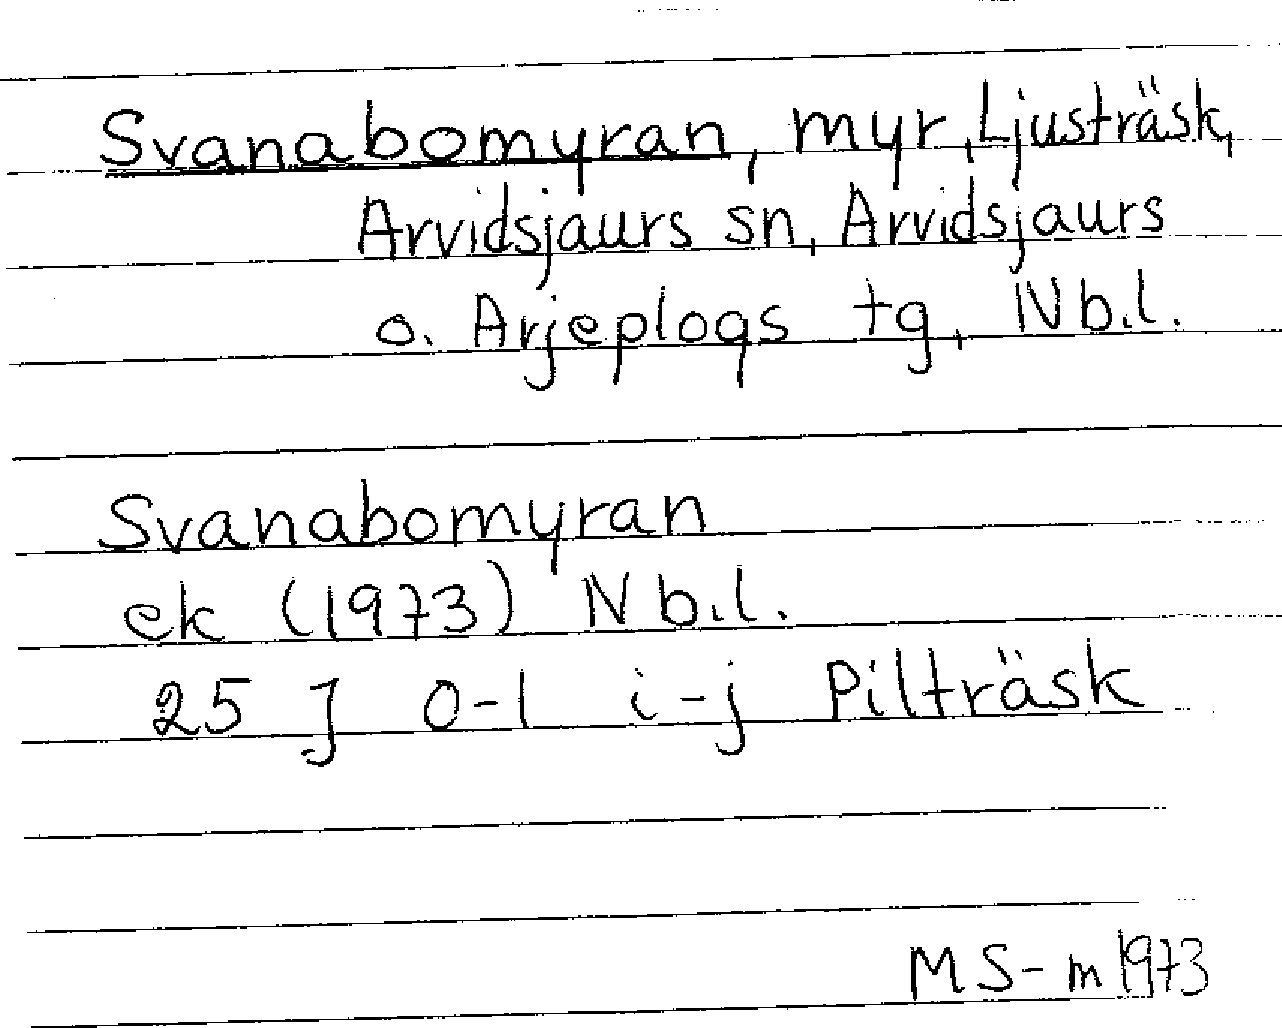 Svanabomyran, myr, Ljusträsk,
Arvidsjaurs sn, Arvidsjaurs
o. Arjeplogs tg, Nb.l.
Svanabomyran
ek (1973) Nb.l.
25 J 0-1 i-j Pilträsk
MS-m 1973